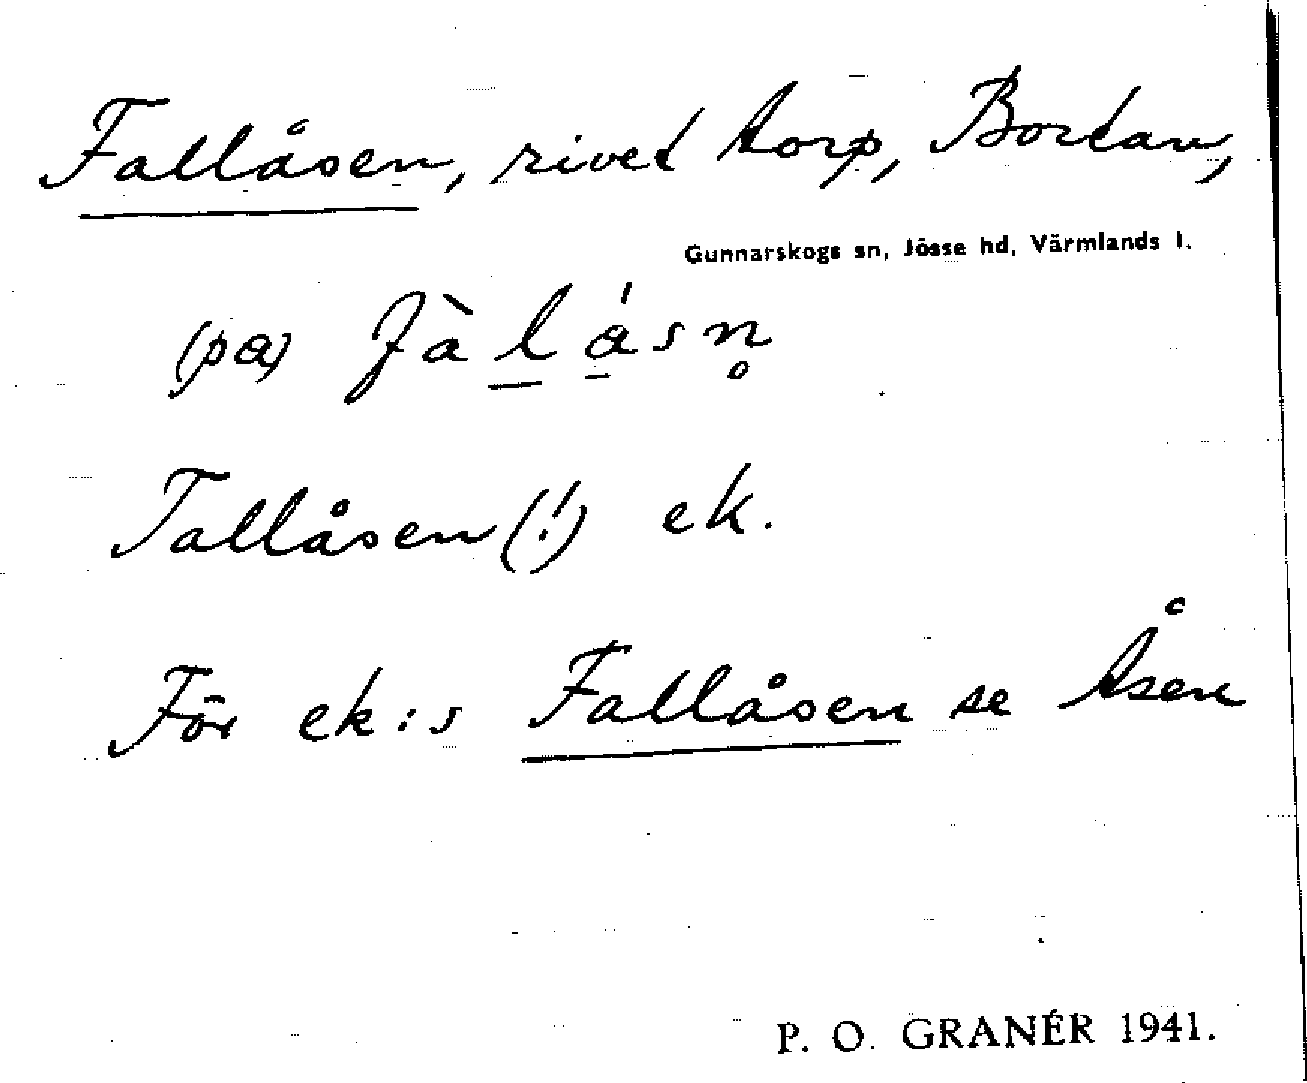 Fallåsen, rivet torp, Bortan,
Gunnarskogs sn, Jösse hd, Värmlands l.
(pa) fàlásn̥
Tallåsen(!) ek.
För ek:s Fallåsen se Åsen
P. O. GRANÉR 1941.